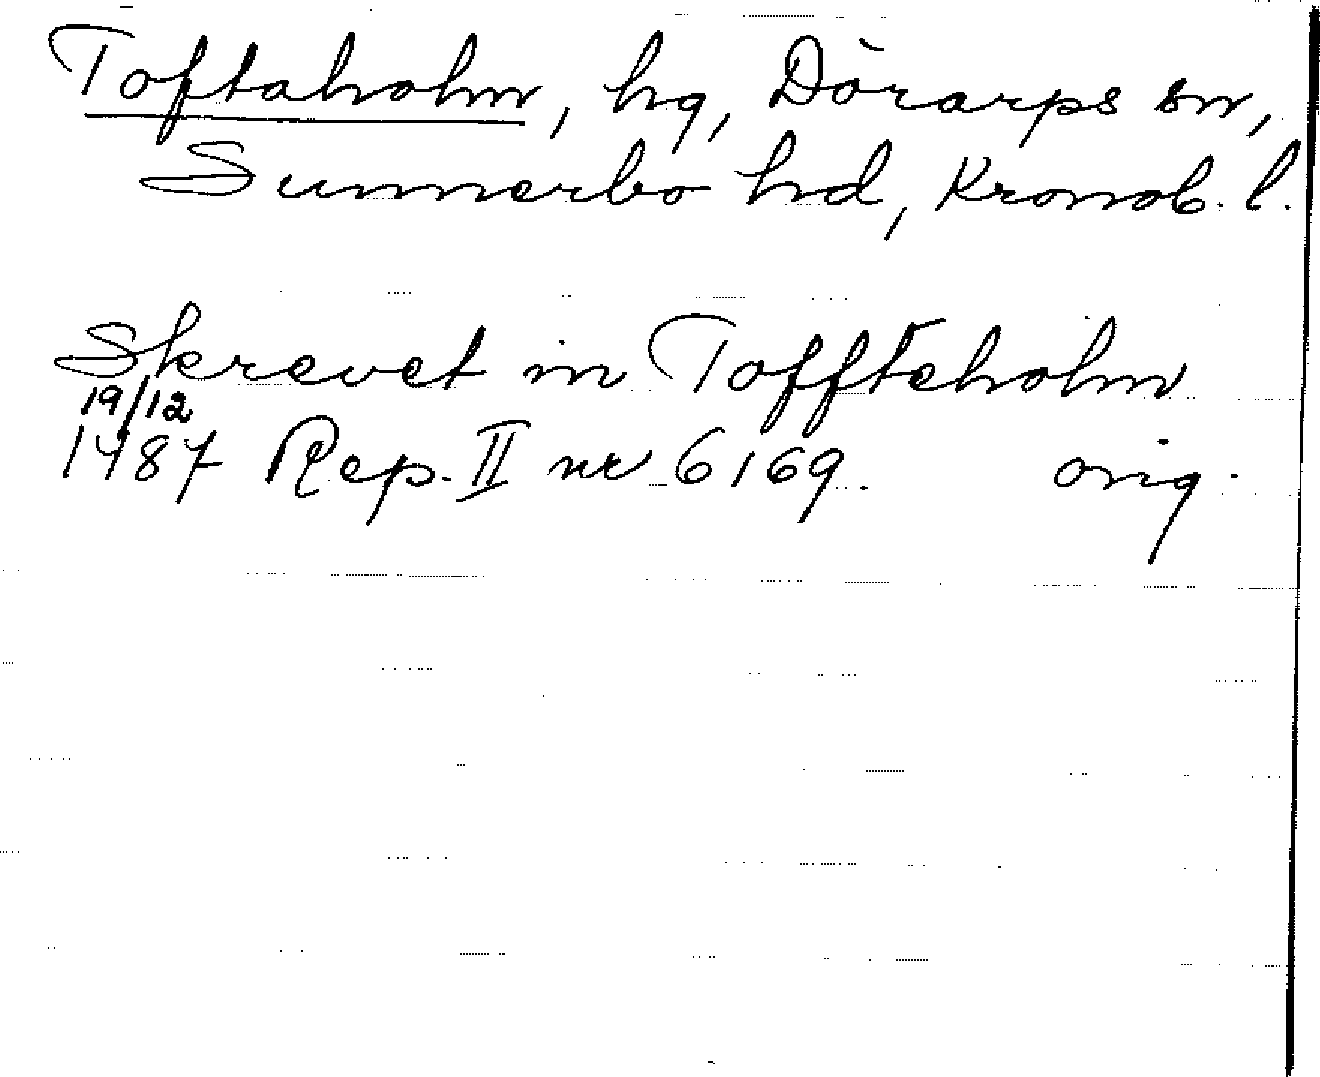 Toftaholm, hg, Dörarps sn,
Sunnerbo hd, Kronob. l.
Skrevet in Toffteholm
19/12
1487 Rep. II nr 6169. orig.